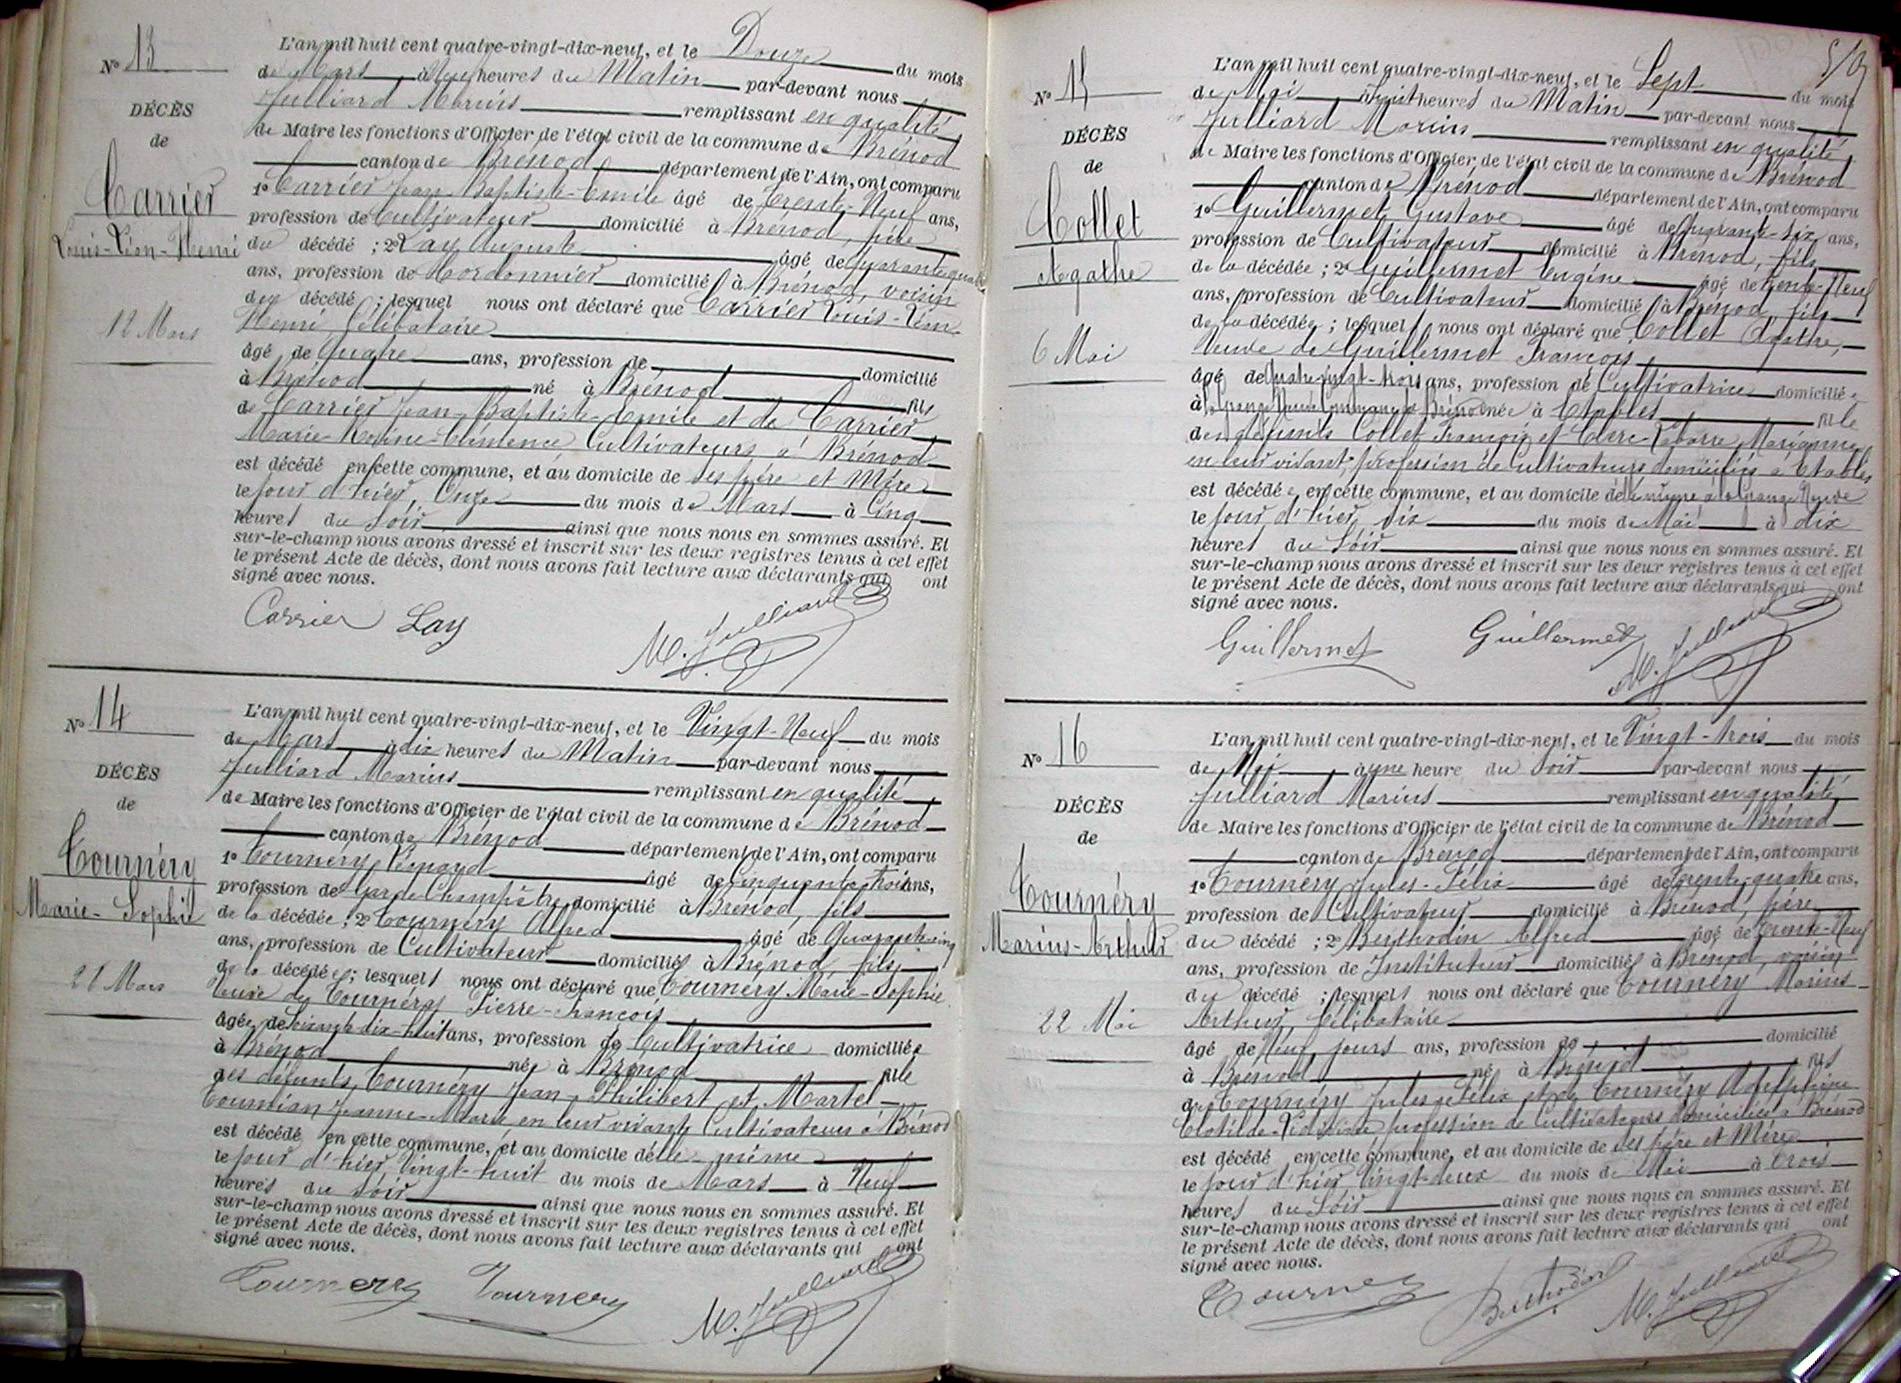 N° 13
DÉCÈS
de
Carrier
Louis-Léon-Henri
12 Mars
L'an mil huit cent quatre-vingt-dix-neuf, et le Douze du mois
de Mars à Neuf heures du Matin par-devant nous
Julliard Marius remplissant en qualité
de Maire les fonctions d'Officier de l'état civil de la commune de Brénod
canton de Brénod département de l'Ain, ont comparu
1° Carrier Jean-Baptiste-Emile âgé de Trente-Neuf ans,
profession de Cultivateur domicilié à Brénod, père
du décédé ; 2° Lay Auguste âgé de quarante quatre
ans, profession de Cordonnier domicilié à Brénod, voisin
du décédé ; lesquels nous ont déclaré que Carrier Louis-Léon-
Henri, Célibataire
âgé de Quatre ans, profession de domicilié
à Brénod né à Brénod fils
de Carrier Jean-Baptiste-Emile et de Carrier
Marie-Clémence Cultivateurs à Brénod
est décédé en cette commune, et au domicile de ses père et Mère
le jour d'hier, Onze du mois de Mars à Cinq
heures du Soir ainsi que nous nous en sommes assuré. Et
sur-le-champ nous avons dressé et inscrit sur les deux registres tenus à cet effet
le présent Acte de décès, dont nous avons fait lecture aux déclarants qui ont
signé avec nous.
Carrier Lay M. Julliard
N° 14
DÉCÈS
de
Tournéry
Marie-Sophie
28 Mars
L'an mil huit cent quatre-vingt-dix-neuf, et le Vingt-Neuf du mois
de Mars à dix heures du Matin par-devant nous
Julliard Marius remplissant en qualité
de Maire les fonctions d'Officier de l'état civil de la commune de Brénod
canton de Brénod département de l'Ain, ont comparu
1° Tournéry âgé de Cinquante trois ans,
profession de Garde Champêtre domicilié à Brénod, fils
de la décédée ; 2° Tournéry Alfred âgé de Quarante cinq
ans, profession de Cultivateur domicilié à Brénod, fils
de la décédée ; lesquels nous ont déclaré que Tournéry Marie-Sophie,
Veuve de Tournéry Pierre-François
âgée de Soixante-dix-huit ans, profession de Cultivatrice domiciliée
à Brénod née à Brénod fille
des défunts Tournéry Jean-Philibert et Martel-
Tournian Jeanne-Marie en leur vivant Cultivateurs à Brénod
est décédée en cette commune, et au domicile d'elle-même
le jour d'hier, Vingt-huit du mois de Mars à Neuf
heures du Soir ainsi que nous nous en sommes assuré. Et
sur-le-champ nous avons dressé et inscrit sur les deux registres tenus à cet effet
le présent Acte de décès, dont nous avons fait lecture aux déclarants qui ont
signé avec nous.
Tournery Tournery M. Julliard
N° 15
DÉCÈS
de
Collet
Agathe
6 Mai
L'an mil huit cent quatre-vingt-dix-neuf, et le Sept du mois
de Mai à huit heures du Matin par-devant nous
Julliard Marius remplissant en qualité
de Maire les fonctions d'Officier de l'état civil de la commune de Brénod
canton de Brénod département de l'Ain, ont comparu
1° Guillermet Gustave âgé de quarante-six ans,
profession de Cultivateur domicilié à Brénod, fils
de la décédée ; 2° Guillermet Eugène âgé de trente-Neuf
ans, profession de Cultivateur domicilié à Brénod, fils
de la décédée ; lesquels nous ont déclaré que Collet Agathe,
Veuve de Guillermet François
âgé de quatre-vingt-trois ans, profession de Cultivatrice domiciliée
à la Grange Neuve Commune de Brénod née à Etables fille
des défunts Collet François et Marianne
en leur vivant profession de Cultivateurs domiciliés à Etables
est décédée en cette commune, et au domicile d'elle-même à la Grange Neuve
le jour d'hier, six du mois de Mai à dix
heures du Soir ainsi que nous nous en sommes assuré. Et
sur-le-champ nous avons dressé et inscrit sur les deux registres tenus à cet effet
le présent Acte de décès, dont nous avons fait lecture aux déclarants qui ont
signé avec nous.
Guillermet Guillermet M. Julliard
N° 16
DÉCÈS
de
Tournéry
Marius-Arthur
22 Mai
L'an mil huit cent quatre-vingt-dix-neuf, et le Vingt-trois du mois
de Mai à une heure du Soir par-devant nous
Julliard Marius remplissant en qualité
de Maire les fonctions d'Officier de l'état civil de la commune de Brénod
canton de Brénod département de l'Ain, ont comparu
1° Tournéry Jules-Félix âgé de trente-quatre ans,
profession de Cultivateur domicilié à Brénod, père
du décédé ; 2° Berthodin Alfred âgé de trente-Neuf
ans, profession de Instituteur domicilié à Brénod, voisin
du décédé ; lesquels nous ont déclaré que Tournéry Marius-
Arthur, Célibataire
âgé de Neuf jours ans, profession de domicilié
à Brénod né à Brénod fils
de Tournéry Jules-Félix et de Tournéry Adelphine
Clotilde profession de Cultivateurs domiciliés à Brénod
est décédé en cette commune, et au domicile de ses père et Mère
le jour d'hier, Vingt-deux du mois de Mai à trois
heures du Soir ainsi que nous nous en sommes assuré. Et
sur-le-champ nous avons dressé et inscrit sur les deux registres tenus à cet effet
le présent Acte de décès, dont nous avons fait lecture aux déclarants qui ont
signé avec nous.
Tournery Berthodin M. Julliard